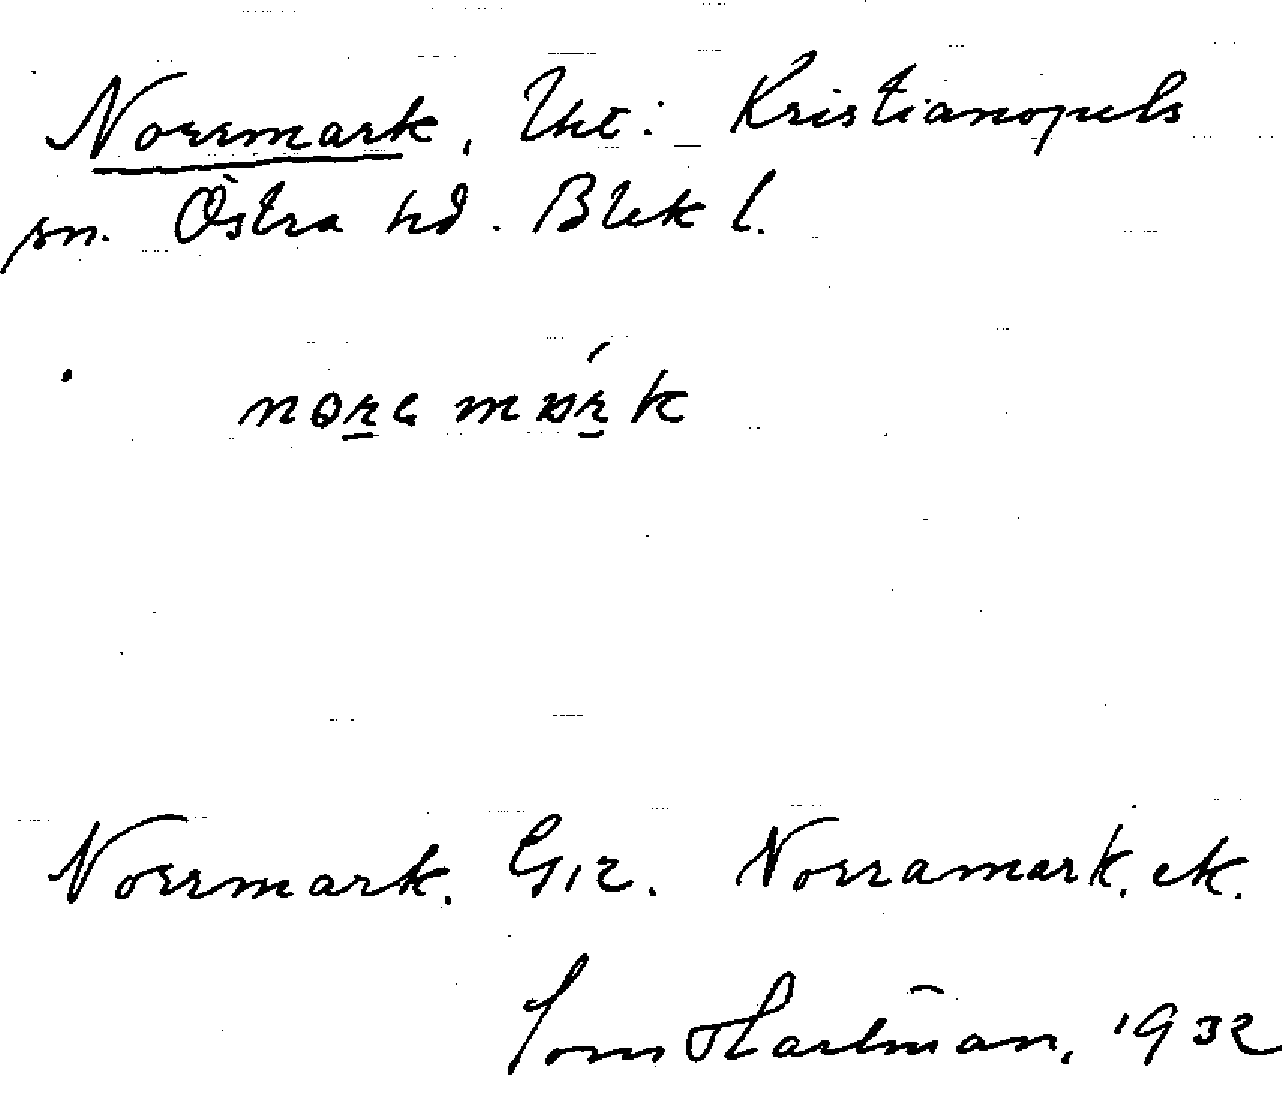 Norrmark, Uht: Kristianopels
sn. Östra hd. Blek l.
Norrmark. G12. Norramark. ek.
Tom Hartman, 1932